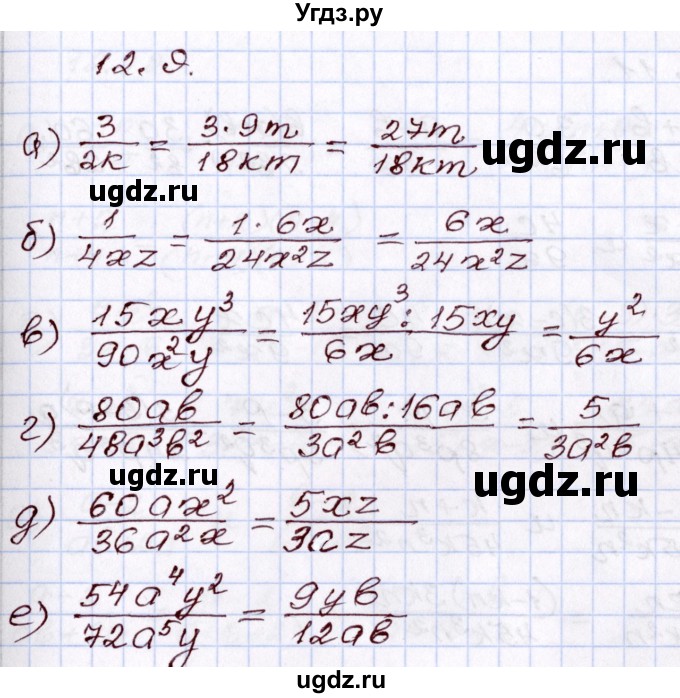 Угдз.ру
12.9.
а) 3/2k = 3·9m/18km = 27m/18km
ugdz.ru
ugdz.ru
б) 1/4xz = 1·6x/24x²z = 6x/24x²z
в) 15xy³/90x²y = 15xy³:15xy/6x = y²/6x
ugdz.ru
г) 80ab/48a³b² = 80ab:16ab/3a²b = 5/3a²b
ugdz.ru
ugdz.ru
д) 60ax²/36a²x = 5xz/3az
ugdz.ru
е) 54a⁴y²/72a⁵y = 9yb/12ab
ugdz.ru
ugdz.ru